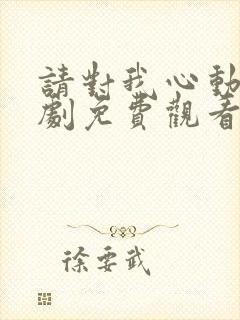 請對我心動
劇免費觀看
徐要武